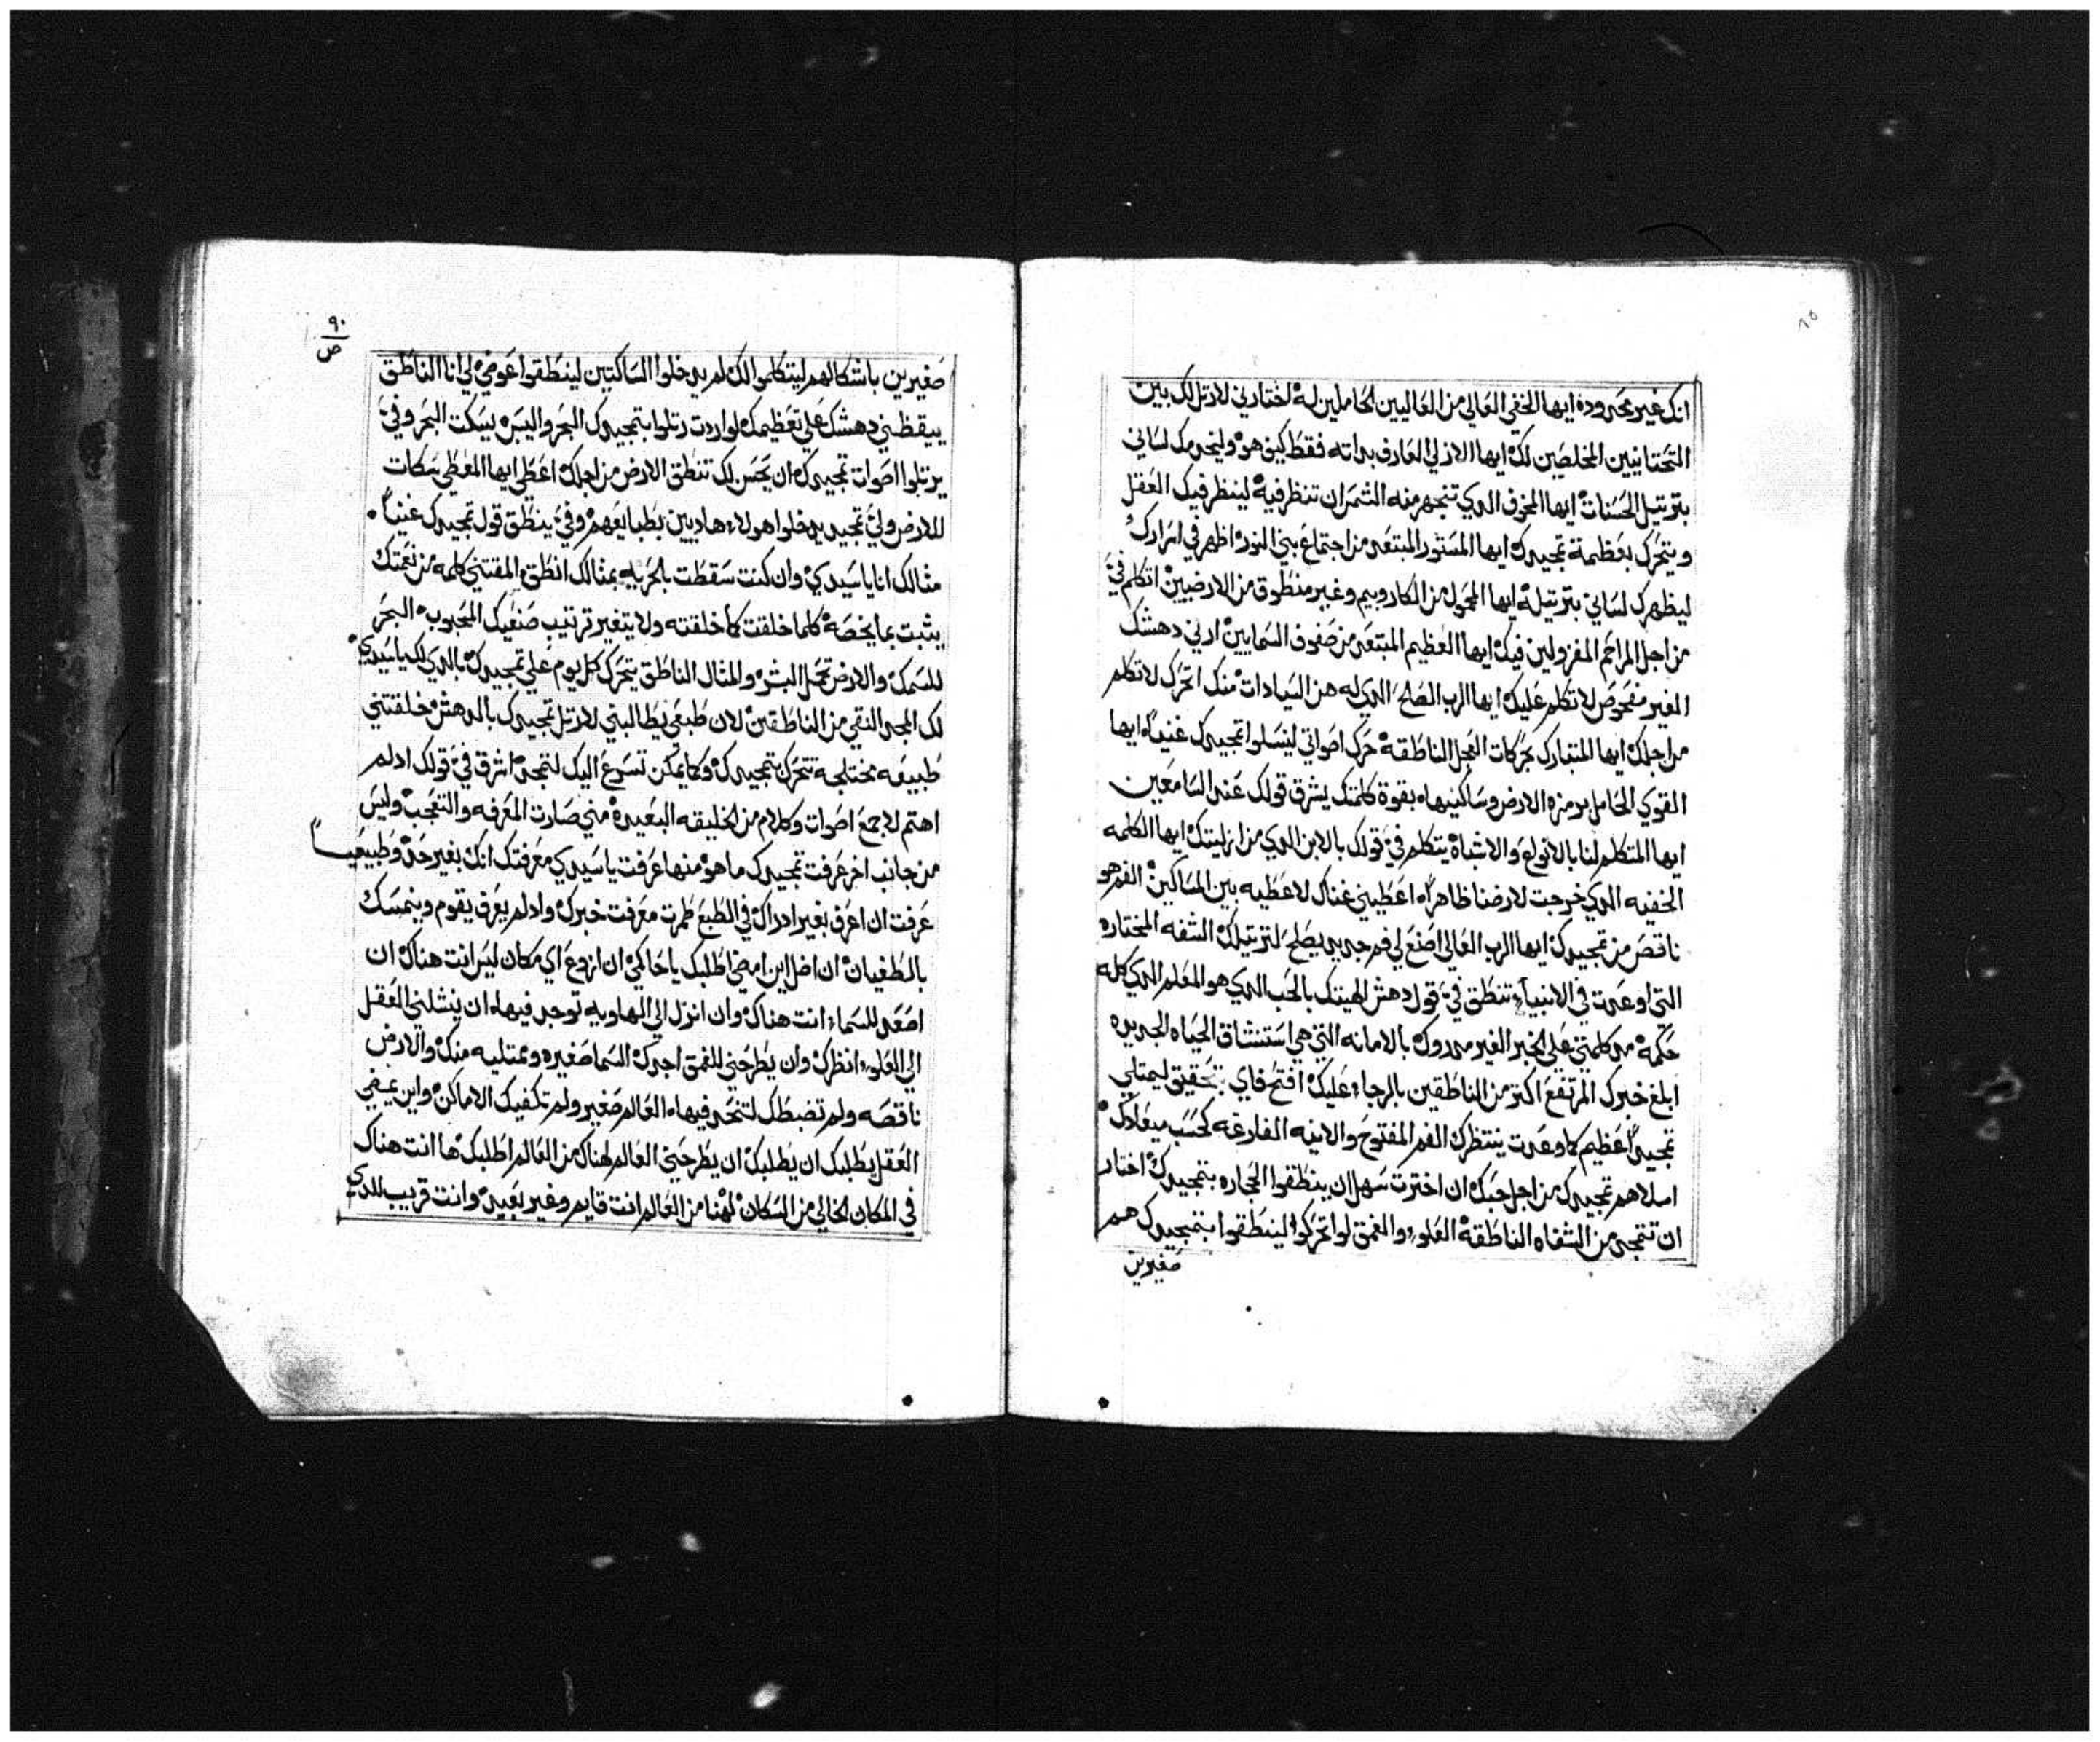 انك غير محدوده ايها الخفي العالي من العاليين الحاملين له اختارني لارتل لك بين
التحتانيين المخلصين لك ايها الازلي العارف بداته فقط كيف هو وليخدمك لساني
بترتيل الحسنات ايها المخوف الدي تنجهر منه الشمر ان تنظر فيه لينظر فيك العقل
ويتحرك بعظمة تمجيدك ايها المستور المبتعد من اجتماع بني النور اظهر في اسرارك
ليظهرك لساني بترتيله ايها المحمول من الكاروبيم وغير منطوق من الارضيين اتكلم في
من اجل المراحم المفرولين فيك ايها العظيم المبتعد من صفوف السمايين ارني دهشك
الغير مفحوص لاتكلم عليك ايها الرب الصلح الدي له هن السادات منك اتحرك لاتكلم
من اجلك ايها المتبارك بحركات العجل الناطقه حرك اصواتي لينسلوا تمجيدك غنيا ايها
القوي الحامل برمزه الارض وساكنيها بقوة كلمتك يشرق قولك عند السامعين
ايها المتكلم لنا بالانواع والاشباه يتكلم في قولك بالابن الدي من ازليتك ايها الكلمه
الخفيه الدي خرجت لارضنا ظاهرا اعطيني غناك لاعطيه بين المساكين الفم هو
ناقص من تمجيدك ايها الرب العالي اصنع لي فم جديد يصلح لترتيلك الشفه المختاره
التي اوعدت في الانبياء تنطق في قول دهش الهيتك بالحب الدي هو المعلم الدي كله
حكمه مد كلمتي على الخبر الغير مدروك بالامانه التي هي استنشاق الحياه الجديده
ابلغ خبرك المرتفع اكتر من الناطقين بالرجاء عليك افتح فاي بتحقيق ليمتلي
تمجيدا عظيم كما وعدت ينتظرك الفم المفتوح والانيه الفارغه كحسب ميعادك
املاهم تمجيدك من اجل حبك ان اخترت سهل ان ينطقوا الحجاره بتمجيدك اختار
ان تتمجد من الشفاه الناطقه العلو والغمق لو اتحركوا لينطقوا بتمجيدك هم
صغيرين
٩٠
ص
صغيرين باشكالهم ليتكلموا لك لم يدخلوا الساكتين لينطقوا عوضي لي انا الناطق
ييقظني دهشك على تعظيمك لو اردت رتلوا بتمجيدك البحر واليبس يسكت البحر وفي
يرتلوا اصوات تمجيدك ان يحسن لك تنطق الارض من اجلك اعطي ايها المعطي سكات
للارض ولي تمجيد يدخلوا هولاء هاديين بطبايعهم وفي ينطق قول تمجيدك غنيا
مثالك انا ياسيدي وان كنت سقطت بالحريه بمثالك انطق المقتني كلمه من نعمتك
يثبت بما يخصه كلما خلقت كما خلقته ولا يتغير ترتيب صنعك المحبوب البحر
للسمك والارض تحمل البشر والمثال الناطق يتحرك كل يوم على تمجيدك بالدي لك ياسيدي
لك المجد النقي من الناطقين لان طبعي يطالبني لارتل تمجيدك بالدهش خلقتني
طبيعه مختلجه تتحرك بتمجيدك وكما يمكن تسرع اليك لتتمجد اشرق في قولك ادلم
اهتم لاجمع اصوات وكلام من الخليقه البعيده مني صارت المعرفه والتعجب وليس
من جانب اخر عرفت تمجيدك ما هو منها عرفت ياسيدي معرفتك انك بغير حد وطبيعيا
عرفت ان اعرف بغير ادراك في الطبع طمرت معرفت خبرك وادلم يعرف يقوم ويتمسك
بالطغيان ان اضل اين امضي اطلبك ياحاكمي ان ازوغ اي مكان ليس انت هناك ان
اصعد للسماء انت هناك وان انزل الي الهاويه توجد فيها ان ينشلني العقل
الي العلو انظرك وان يطرحني للغمق اجدك السما صغيره وممتليه منك والارض
ناقصه ولم تضبطك لتنحد فيها العالم صغير ولم تكفيك الاماكن واين يمضي
العقل يطلبك ان يطلبك ان يطرحني العالم لهناك من العالم اطلبك ها انت هناك
في المكان الخالي من السكان لهنا من العالم انت قايم وغير بعيد وانت قريب للدي